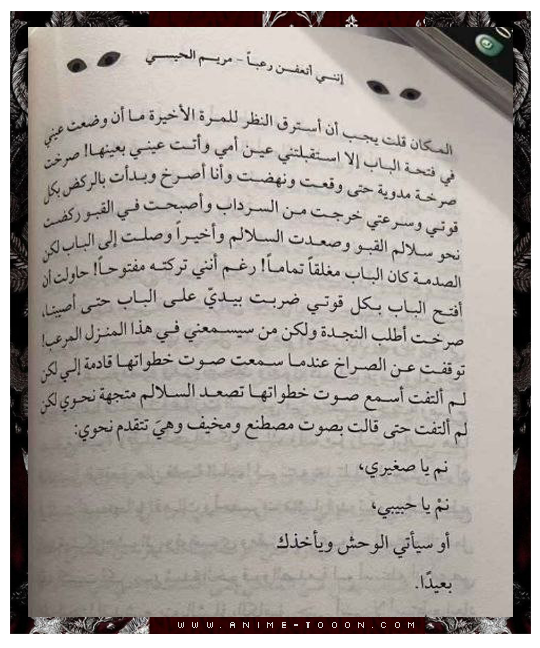 إنني أتعفن رعباً - مريم الحيسي
المكان قلت يجب أن أسترق النظر للمرة الأخيرة ما أن وضعت عيني
في فتحة الباب إلا استقبلتني عين أمي وأتت عيني بعينها! صرخت
صرخة مدوية حتى وقعت ونهضت وأنا أصرخ وبدأت بالركض بكل
قوتي وسرعتي خرجت من السرداب وأصبحت في القبو ركضت
نحو سلالم القبو وصعدت السلالم وأخيراً وصلت إلى الباب لكن
الصدمة كان الباب مغلقاً تماماً! رغم أنني تركته مفتوحاً! حاولت أن
أفتح الباب بكل قوتي ضربت بيديّ على الباب حتى أصيبتا،
صرخت أطلب النجدة ولكن من سيسمعني في هذا المنزل المرعب!
توقفت عن الصراخ عندما سمعت صوت خطواتها قادمة إلي لكن
لم ألتفت أسمع صوت خطواتها تصعد السلالم متجهة نحوي لكن
لم ألتفت حتى قالت بصوت مصطنع ومخيف وهيَ تتقدم نحوي:
نم يا صغيري،
نمْ يا حبيبي،
أو سيأتي الوحش ويأخذك
بعيدًا.
WWW.ANIME-TOOON.COM